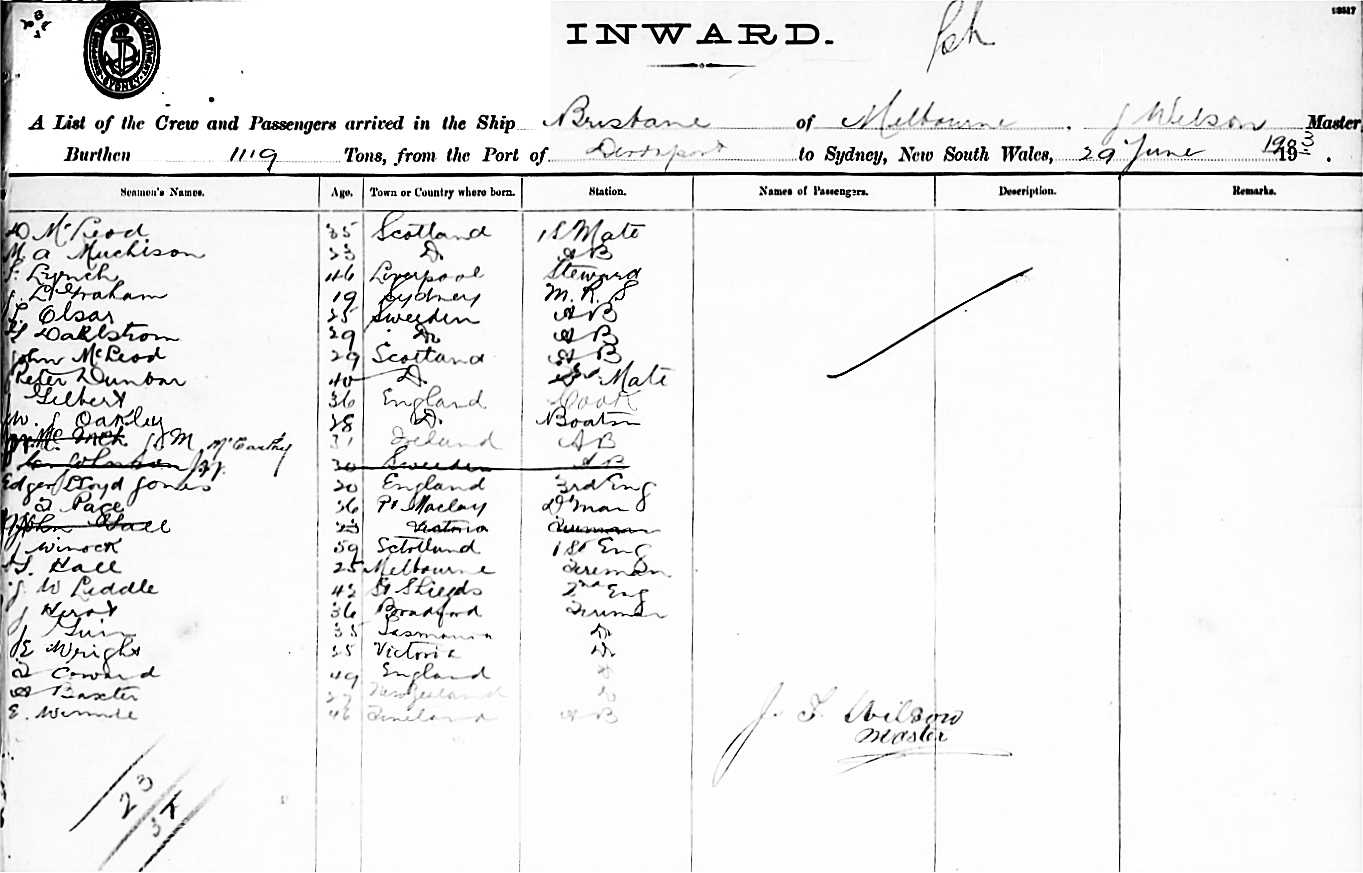 18517
INWARD.
A List of the Crew and Passengers arrived in the Ship Brisbane of Melbourne. J Wilson Master,
Burthen 1119 Tons, from the Port of Devonport to Sydney, New South Wales, 29 June 19
Seamen's Names. Age. Town or Country where born. Station. Names of Passengers. Description. Remarks.
D McLeod 35 Scotland 1st Mate
M. A Muchison 23 Do AB
Lynch 46 Liverpool Steward
Graham 19 Sydney M. R. S
Olsar 25 Sweden AB
Dahlstrom 29 Do AB
John McLeod 29 Scotland AB
Peter Dunbar 40 Do Mate
J Gilbert 36 England Cook
W. J Oakley 28 Do Boatsn
McCarthy 31 Ireland AB
30 Sweden AB
Edger Lloyd Jones 20 England 3rd Eng
Page 36 Pt Maclay D'man
John Gall 23 Victoria Fireman
J Winock 59 Sctotland 1st Eng
Hall 25 Melbourne Fireman
J. W Liddle 42 St Shields 2nd Eng
J 36 Bradford Fireman
J 35 Tasmania Do
E Wright 35 Victoria Do
Coward 49 England
A Baxter 27 New Zealand
E. Winnde 46 Finland AB
J. F. Wilson
Master
23